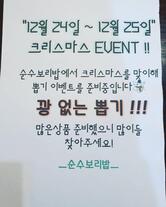 "12월 24일 ~ 12월 25일"
크리스마스 EVENT !!
순수보리밥에서 크리스마스를 맞이해
뽑기 이벤트를 준비중입니다
꽝 없는 뽑기 !!!
많은상품 준비했으니 많이들
찾아주세요!
_순수보리밥_